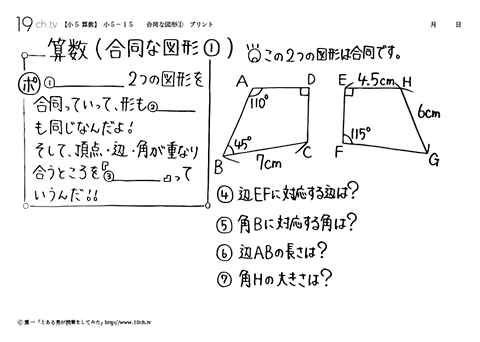 19ch.tv 【小5算数】 小5-15 合同な図形① プリント 月 日
算数(合同な図形①)
この2つの図形は合同です。
ポ ①________ 2つの図形を
合同っていって、形も②____
も同じなんだよ!
そして、頂点・辺・角が重なり
合うところを『③________』って
いうんだ!!
A D
110°
45°
B 7cm C
E 4.5cm H
6cm
115°
F G
④ 辺EFに対応する辺は?
⑤ 角Bに対応する角は?
⑥ 辺ABの長さは?
⑦ 角Hの大きさは?
© 葉一「とある男が授業をしてみた」http://www.19ch.tv